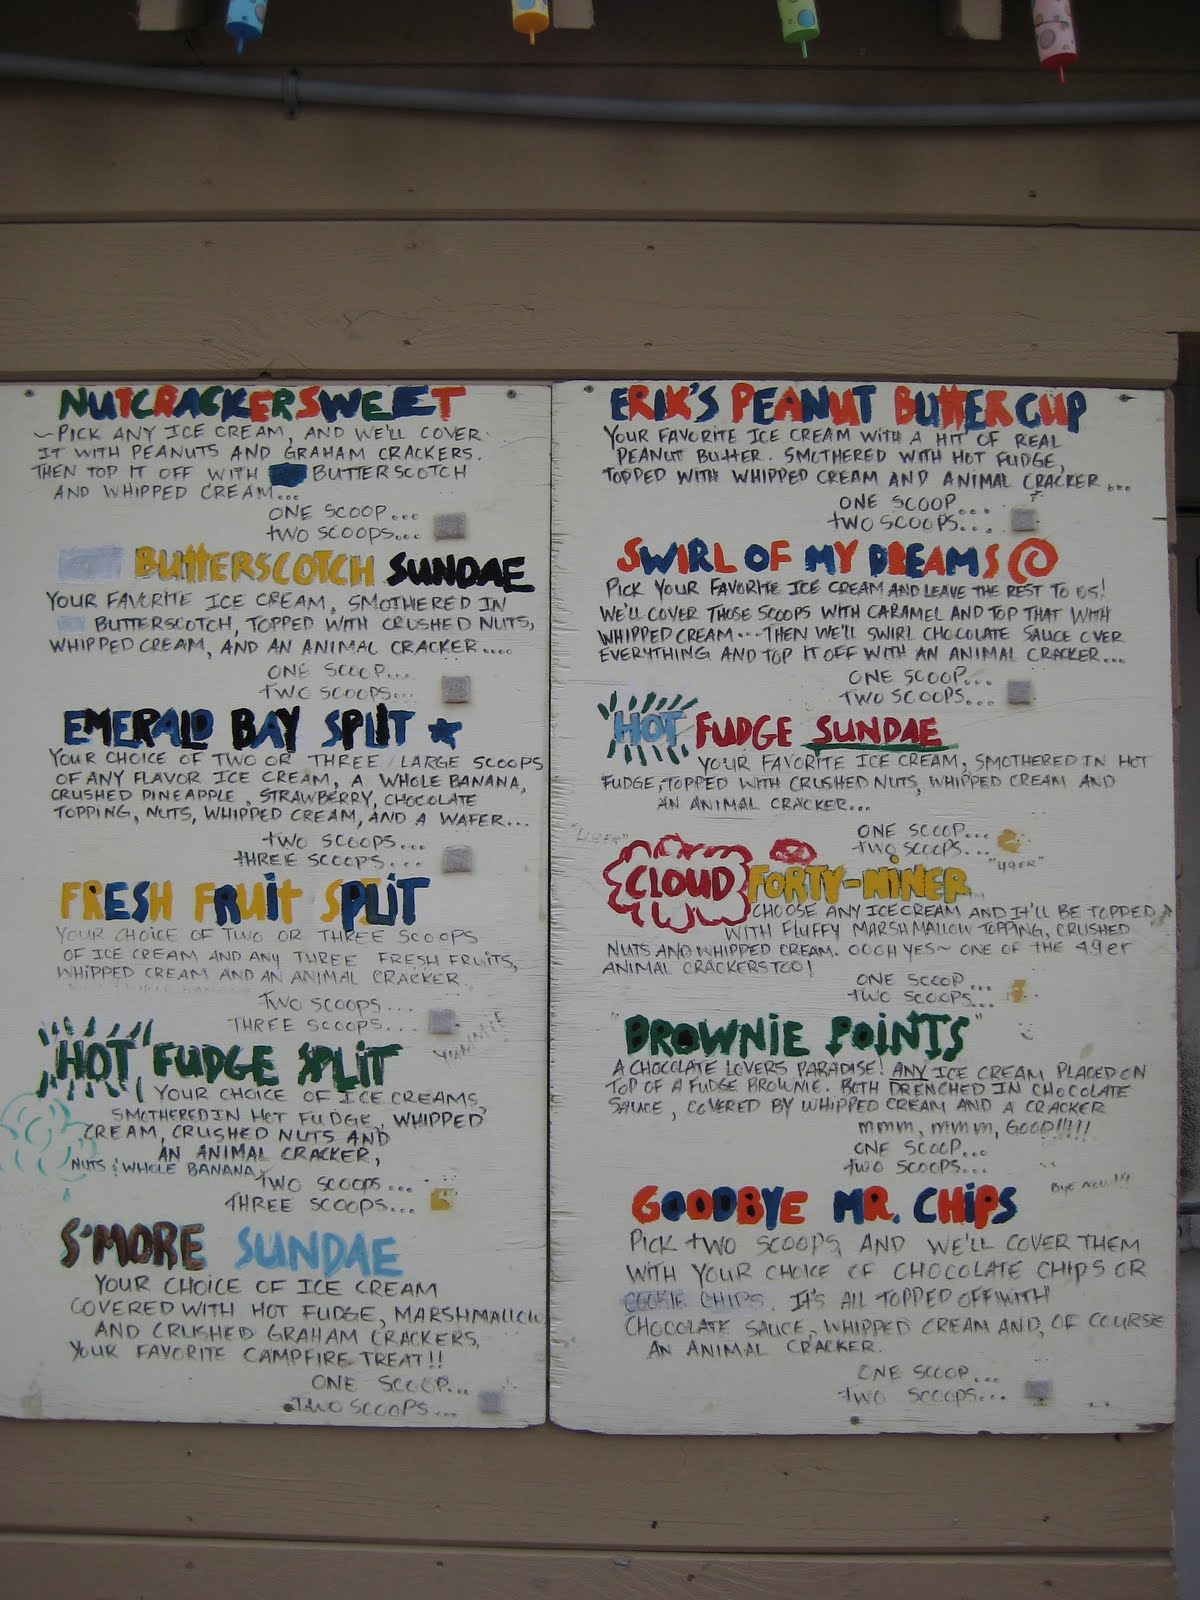 NUTCRACKERSWEET
~PICK ANY ICE CREAM, AND WE'LL COVER
IT WITH PEANUTS AND GRAHAM CRACKERS.
THEN TOP IT OFF WITH BUTTERSCOTCH
AND WHIPPED CREAM...
ONE SCOOP...
TWO SCOOPS...
BUTTERSCOTCH SUNDAE
YOUR FAVORITE ICE CREAM, SMOTHERED IN
BUTTERSCOTCH, TOPPED WITH CRUSHED NUTS,
WHIPPED CREAM, AND AN ANIMAL CRACKER....
ONE SCOOP...
TWO SCOOPS...
EMERALD BAY SPLIT
YOUR CHOICE OF TWO OR THREE LARGE SCOOPS
OF ANY FLAVOR ICE CREAM, A WHOLE BANANA,
CRUSHED PINEAPPLE, STRAWBERRY, CHOCOLATE
TOPPING, NUTS, WHIPPED CREAM, AND A WAFER...
TWO SCOOPS...
THREE SCOOPS...
FRESH FRUIT SPLIT
YOUR CHOICE OF TWO OR THREE SCOOPS
OF ICE CREAM AND ANY THREE FRESH FRUITS,
WHIPPED CREAM AND AN ANIMAL CRACKER.
TWO SCOOPS...
THREE SCOOPS...
"HOT" FUDGE SPLIT
YOUR CHOICE OF ICE CREAMS,
SMOTHERED IN HOT FUDGE, WHIPPED
CREAM, CRUSHED NUTS AND
AN ANIMAL CRACKER,
NUTS & WHOLE BANANA
TWO SCOOPS...
THREE SCOOPS...
S'MORE SUNDAE
YOUR CHOICE OF ICE CREAM
COVERED WITH HOT FUDGE, MARSHMALLOW
AND CRUSHED GRAHAM CRACKERS,
YOUR FAVORITE CAMPFIRE TREAT!!
ONE SCOOP...
TWO SCOOPS...
ERIK'S PEANUT BUTTER CUP
YOUR FAVORITE ICE CREAM WITH A HIT OF REAL
PEANUT BUTTER. SMOTHERED WITH HOT FUDGE,
TOPPED WITH WHIPPED CREAM AND ANIMAL CRACKER...
ONE SCOOP...
TWO SCOOPS...
SWIRL OF MY DREAMS
PICK YOUR FAVORITE ICE CREAM AND LEAVE THE REST TO US!
WE'LL COVER THOSE SCOOPS WITH CARAMEL AND TOP THAT WITH
WHIPPED CREAM...THEN WE'LL SWIRL CHOCOLATE SAUCE OVER
EVERYTHING AND TOP IT OFF WITH AN ANIMAL CRACKER...
ONE SCOOP...
TWO SCOOPS...
"HOT" FUDGE SUNDAE
YOUR FAVORITE ICE CREAM, SMOTHERED IN HOT
FUDGE, TOPPED WITH CRUSHED NUTS, WHIPPED CREAM AND
AN ANIMAL CRACKER...
ONE SCOOP...
TWO SCOOPS...
"49ER"
CLOUD FORTY-NINER
CHOOSE ANY ICE CREAM AND IT'LL BE TOPPED
WITH FLUFFY MARSHMALLOW TOPPING, CRUSHED
NUTS AND WHIPPED CREAM. OOOH YES~ ONE OF THE 49er
ANIMAL CRACKERS TOO!
ONE SCOOP...
TWO SCOOPS...
"BROWNIE POINTS"
A CHOCOLATE LOVERS PARADISE! ANY ICE CREAM PLACED ON
TOP OF A FUDGE BROWNIE. BOTH DRENCHED IN CHOCOLATE
SAUCE, COVERED BY WHIPPED CREAM AND A CRACKER
mmm, mmm, GOOD!!!!!
ONE SCOOP...
TWO SCOOPS...
GOODBYE MR. CHIPS
PICK TWO SCOOPS AND WE'LL COVER THEM
WITH YOUR CHOICE OF CHOCOLATE CHIPS OR
COOKIE CHIPS. IT'S ALL TOPPED OFF WITH
CHOCOLATE SAUCE, WHIPPED CREAM AND, OF COURSE
AN ANIMAL CRACKER.
ONE SCOOP...
TWO SCOOPS...